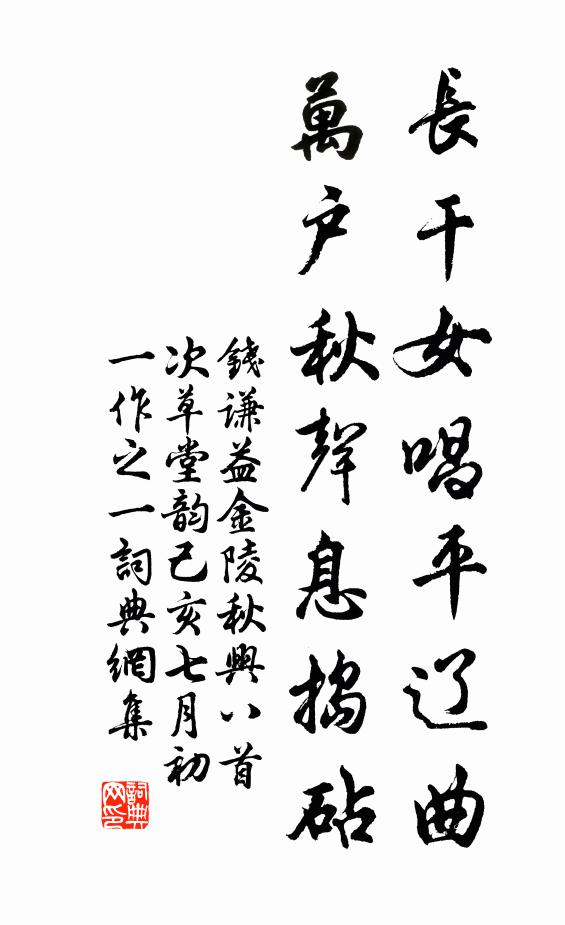 長干女唱平辽曲
萬户秋聲息搗砧
錢谦益金陵秋興八首
次草堂韵己亥七月初
一作之一詞典網集
詞典网印